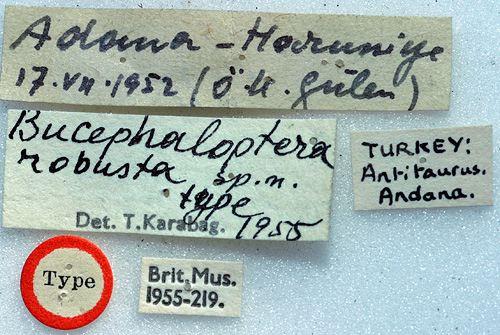 Adana-Haruniye
17.VII.1952 (Ö.K. Gülen)
Bucephaloptera
robusta sp.n.
type
Det. T.Karabag. 1955
TURKEY:
Antitaurus.
Andana.
Type
Brit.Mus.
1955-219.